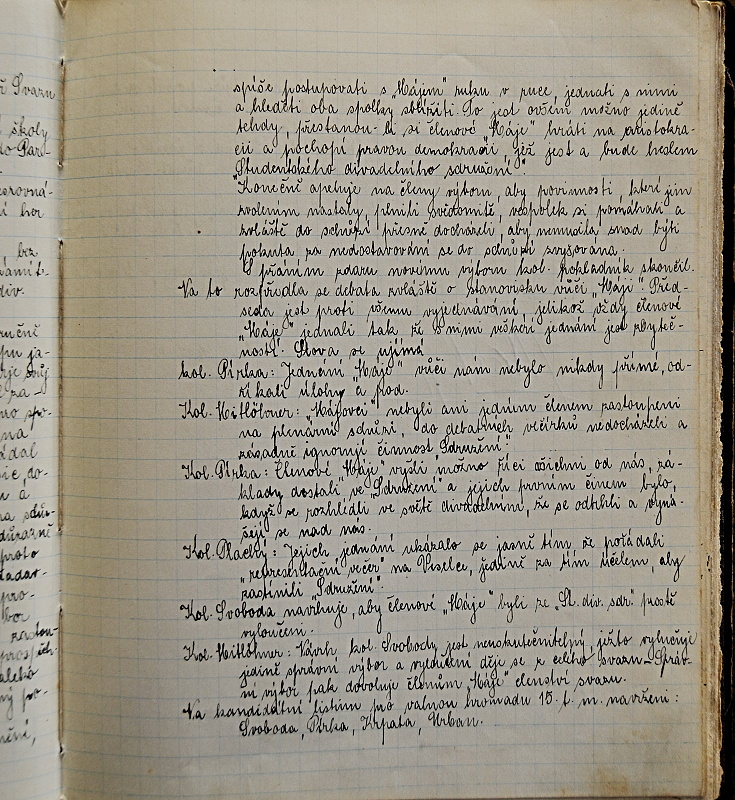 ř Svazu
školy
do Par-
-
esrovná-
í hor
bez
zámít-
div.
pu ja-
rje svůj
za-
mo spo-
na
ádal
do-
u a
na sdru-
důrazně
proto
pro-
bor
zastou-
prospěch
spíše postupovati s „Májem“ ruku v ruce jednati s nimi
a hleděti oba spolky sblížiti. To jest ovšem možno jedině
tehdy, přestanou-li si členové „Máje“ hráti na aristokra-
cii a pochopí pravou demokracii, jež jest a bude heslem
Studentského divadelního sdružení“.
"Konečně apeluje na členy výboru, aby povinnosti, které jim
zvolením nastaly, plnili svědomitě, vespolek si pomáhali a
zvláště do schůzí přesně docházeli, aby nemusila snad býti
pokuta za nedostavování se do schůzí zvyšována.
S přáním zdaru novému výboru kol. pokladník skončil.
Na to rozpředla se debata zvláště o stanovisku vůči „Máji“. Před-
seda jest proti všemu vyjednávání, jelikož vždy členové
„Máje“ jednali tak že s nimi veškeré jednání jest zbyteč-
ností. Slova se ujímá
kol. Pírka: Jednání „Máje“ vůči nam nebylo nikdy přímé, od-
říkali úlohy a pod.
Kol. Mitlöhner: „Májovci“ nebyli ani jedním členem zastoupeni
na plenární schůzi, do debatních večírků nedocházeli a
zásadně ignorují činnost „Sdružení“.
Kol. Pírka: Členové „Máje“ vyšli možno říci všichni od nás, zá-
klady dostali ve „Sdružení“ a jejich prvním činem bylo,
když se rozhlédli ve světě divadelním, že se odtrhli a vyná-
šejí se nad nás.
Kol. Plachý: Jejich jednání ukázalo se jasně tím, že pořádali
„representační večer“ na Veselce, jedině za tím účelem, aby
zastínili „Sdružení“.
Kol. Svoboda navrhuje, aby členové „Máje“ byli ze „St. div. sdr“ prostě
vyloučeni.
Kol. Mitlöhner: Návrh kol. Svobody jest neuskutečnitelný, ježto vylučuje
jedině správní výbor a vyloučení děje se z celého svazu – Správ-
ní výbor pak dovoluje členům „Máje“ členství svazu.
Na kandidátní listinu pro valnou hromadu 15. t. m. navrženi:
Svoboda, Pírka, Krpata, Urban.